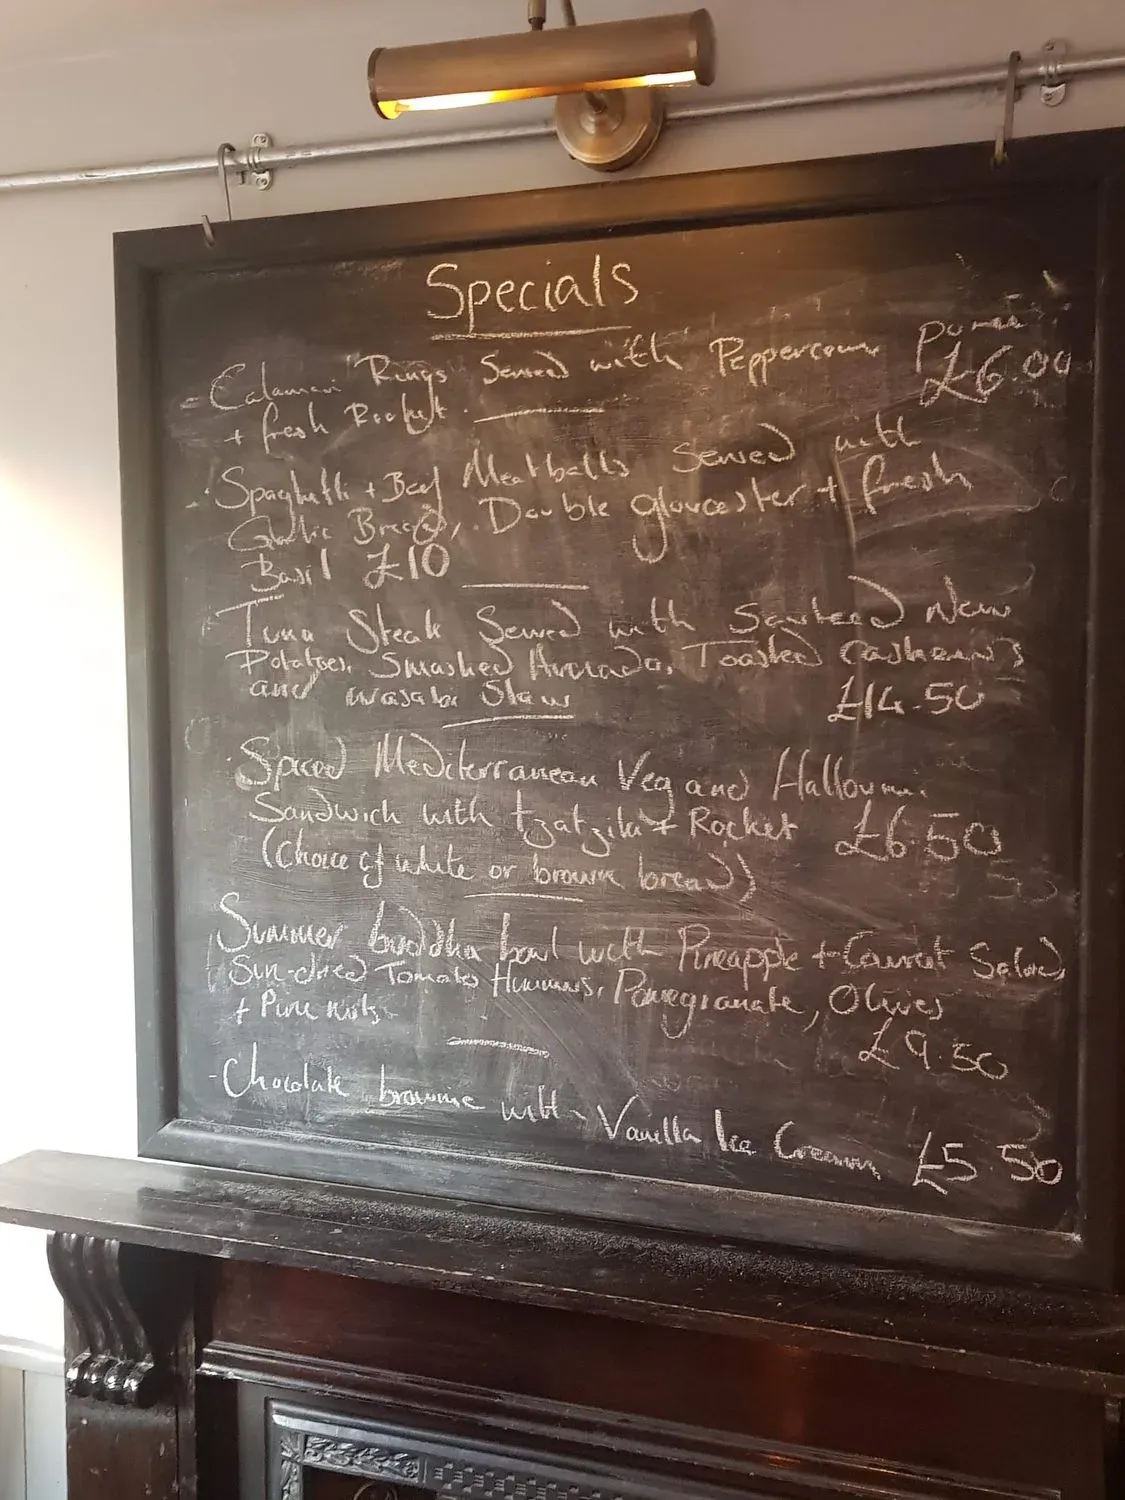 Specials
- Calamari Rings Served with Peppercorn puree
+ fresh Rocket £6.00
- Spaghetti + Beef Meatballs Served with
Garlic Bread, Double gloucester + fresh
Basil £10
Tuna Steak Served with Sauteed New
Potatoes, Smashed Avocado, Toasted Cashews
and wasabi Slaw £14.50
Spiced Mediterranean Veg and Halloumi
Sandwich with tzatziki + Rocket £6.50
(Choice of white or brown bread)
Summer buddha bowl with Pineapple + Carrot Salad,
Sun-dried Tomato Hummus, Pomegranate, Olives
+ Pine nuts £9.50
- Chocolate brownie with Vanilla Ice Cream £5.50